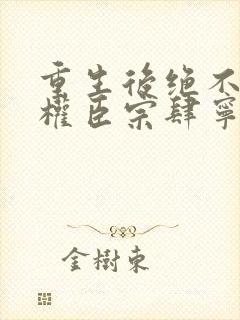 重生後绝不
權臣宗肆寧
金樹東